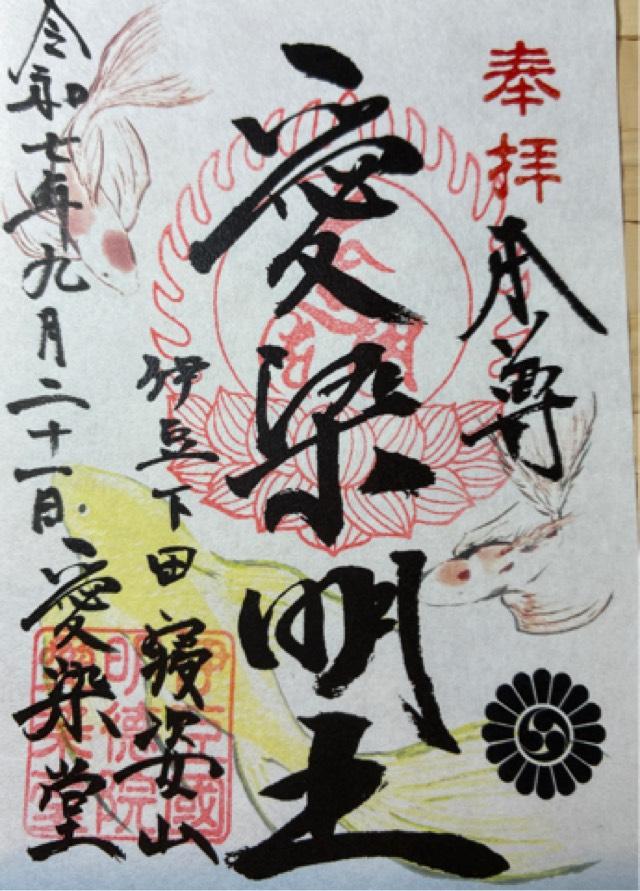 奉拝
本尊
愛染明王
伊豆下田寝姿山
令和七年九月二十一日
愛染堂
明徳院